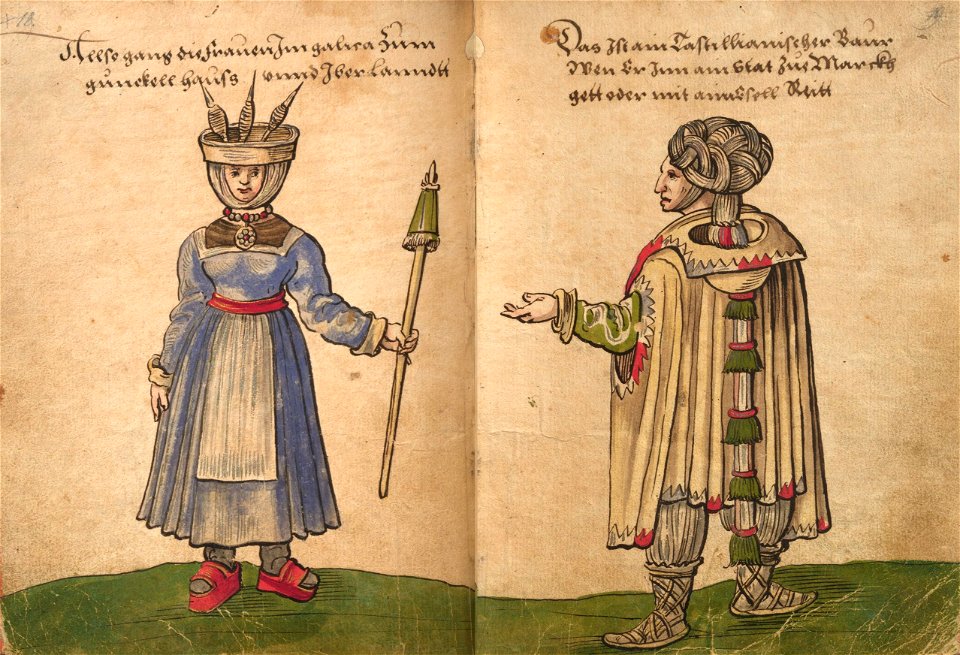 18.
Allso gand die Frawen Im galica Zum
gunckell hauss vnnd Iber Lanndtt
Das Ist ain Castillianischer Baur
Wen Er Inn ain Stat Zue Marckh
gett oder mit aim Esell Reitt